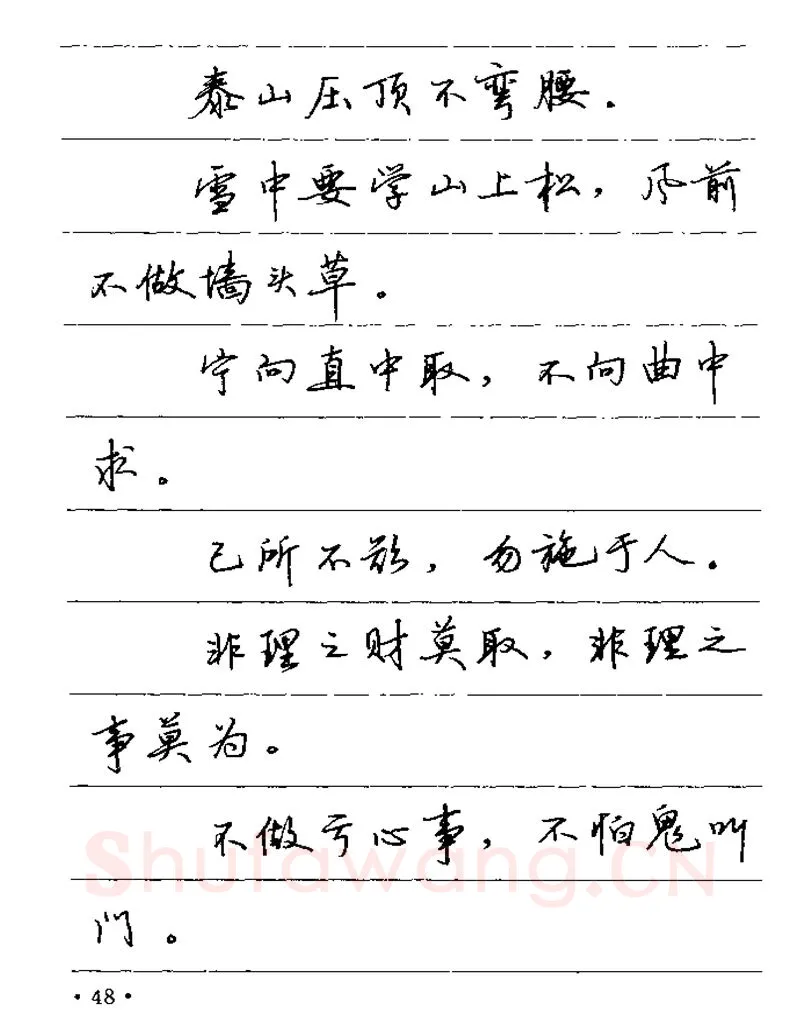 泰山压顶不弯腰.
雪中要学山上松，风前
不做墙头草。
宁向直中取，不向曲中
求。
己所不欲，勿施于人.
非理之财莫取，非理之
事莫为。
不做亏心事，不怕鬼叫
门。
Shufawang.CN
·48·